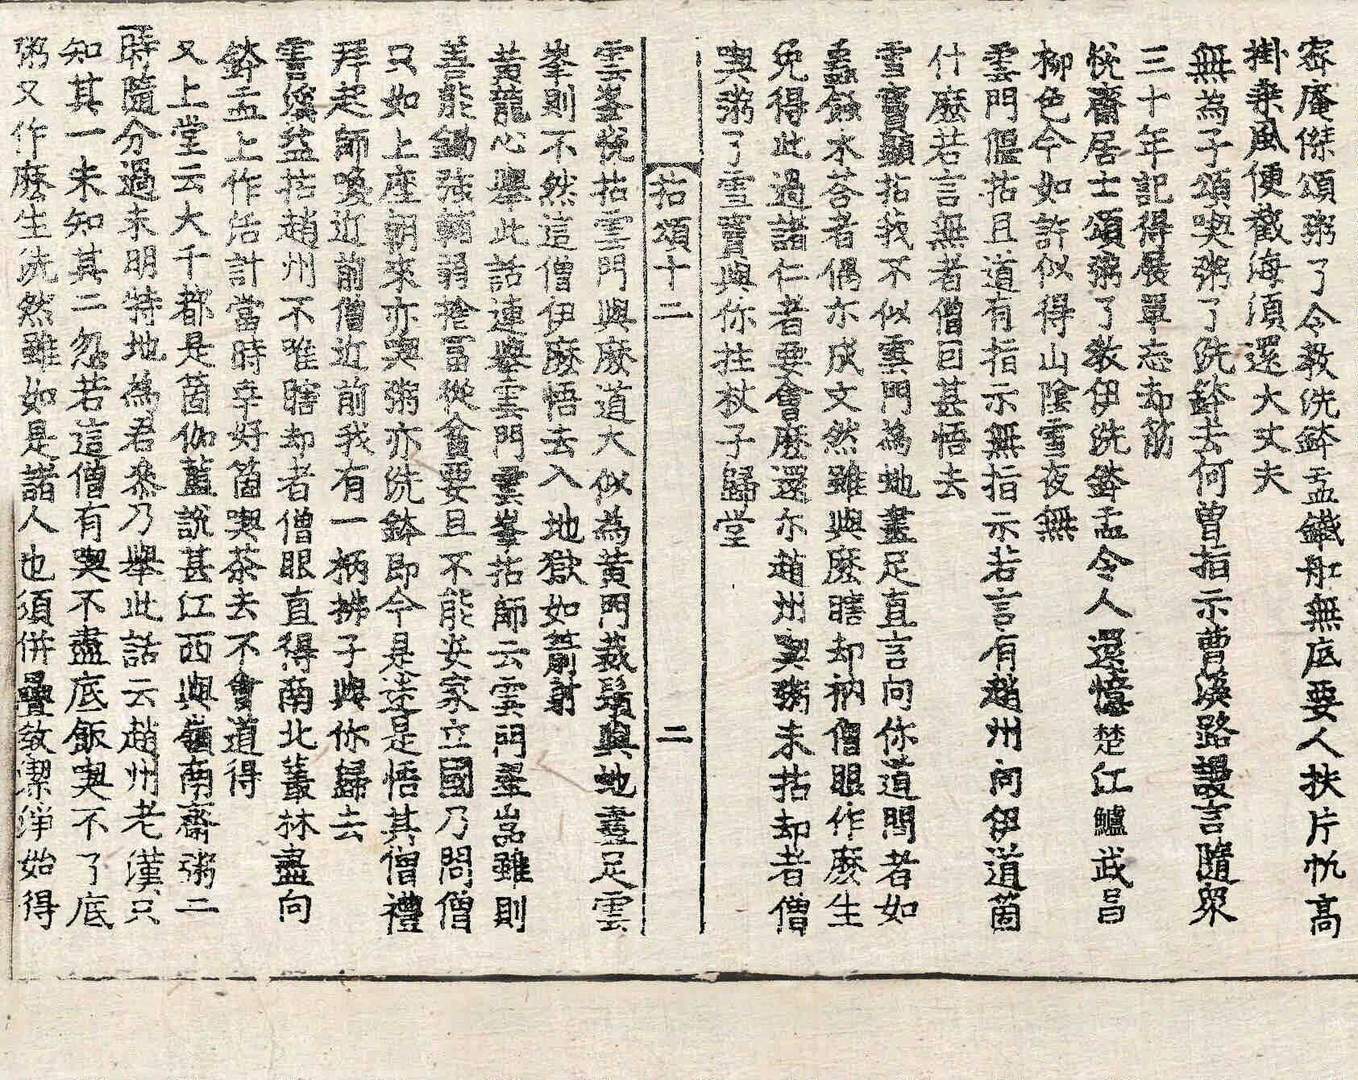 密庵傑頌粥了令教洗鉢盂鐵舡無底要人扶片帆高
掛乗風便截海須還大丈夫
無為子頌喫粥了洗鉢去何曾指示曹溪路謾言隨衆
三十年記得展單忘却筯
悅齋居士頌粥了教伊洗鉢盂令人還憶楚江鱸武昌
柳色今如許似得山陰雪夜無
雲門偃拈且道有指示無指示若言有趙州向伊道箇
什麽若言無者僧因甚悟去
雪竇顯拈我不似雲門為虵畫足直言向你道問者如
蟲蝕木荅者偶亦成文然雖與麽瞎却衲僧眼作麽生
免得此過諸仁者要會麽還亦趙州喫粥未拈却者僧
喫粥了雪竇與你拄杖子歸堂
拈頌十二 二
雲峯悅拈雲門與麽道大似為黄門栽鬚與虵畫足雲
峯則不然這僧伊麽悟去入地獄如箭射
黄龍心舉此話連舉雲門雲峯拈師云雲門雲峯雖則
善能鋤強輔弱捨富從貧要且不能安家立國乃問僧
只如上座朝來亦喫粥亦洗鉢即今是迷是悟其僧禮
拜起師喚近前僧近前我有一柄拂子與你歸去
雲溪益拈趙州不唯瞎却者僧眼直得南北叢林盡向
鉢盂上作活計當時幸好箇喫茶去不會道得
又上堂云大千都是箇伽藍說甚江西與嶺南齋粥二
時隨分過未明特地為君叅乃舉此話云趙州老漢只
知其一未知其二忽若這僧有喫不盡底飯喫不了底
粥又作麽生洗然雖如是諸人也須併疊教潔淨始得